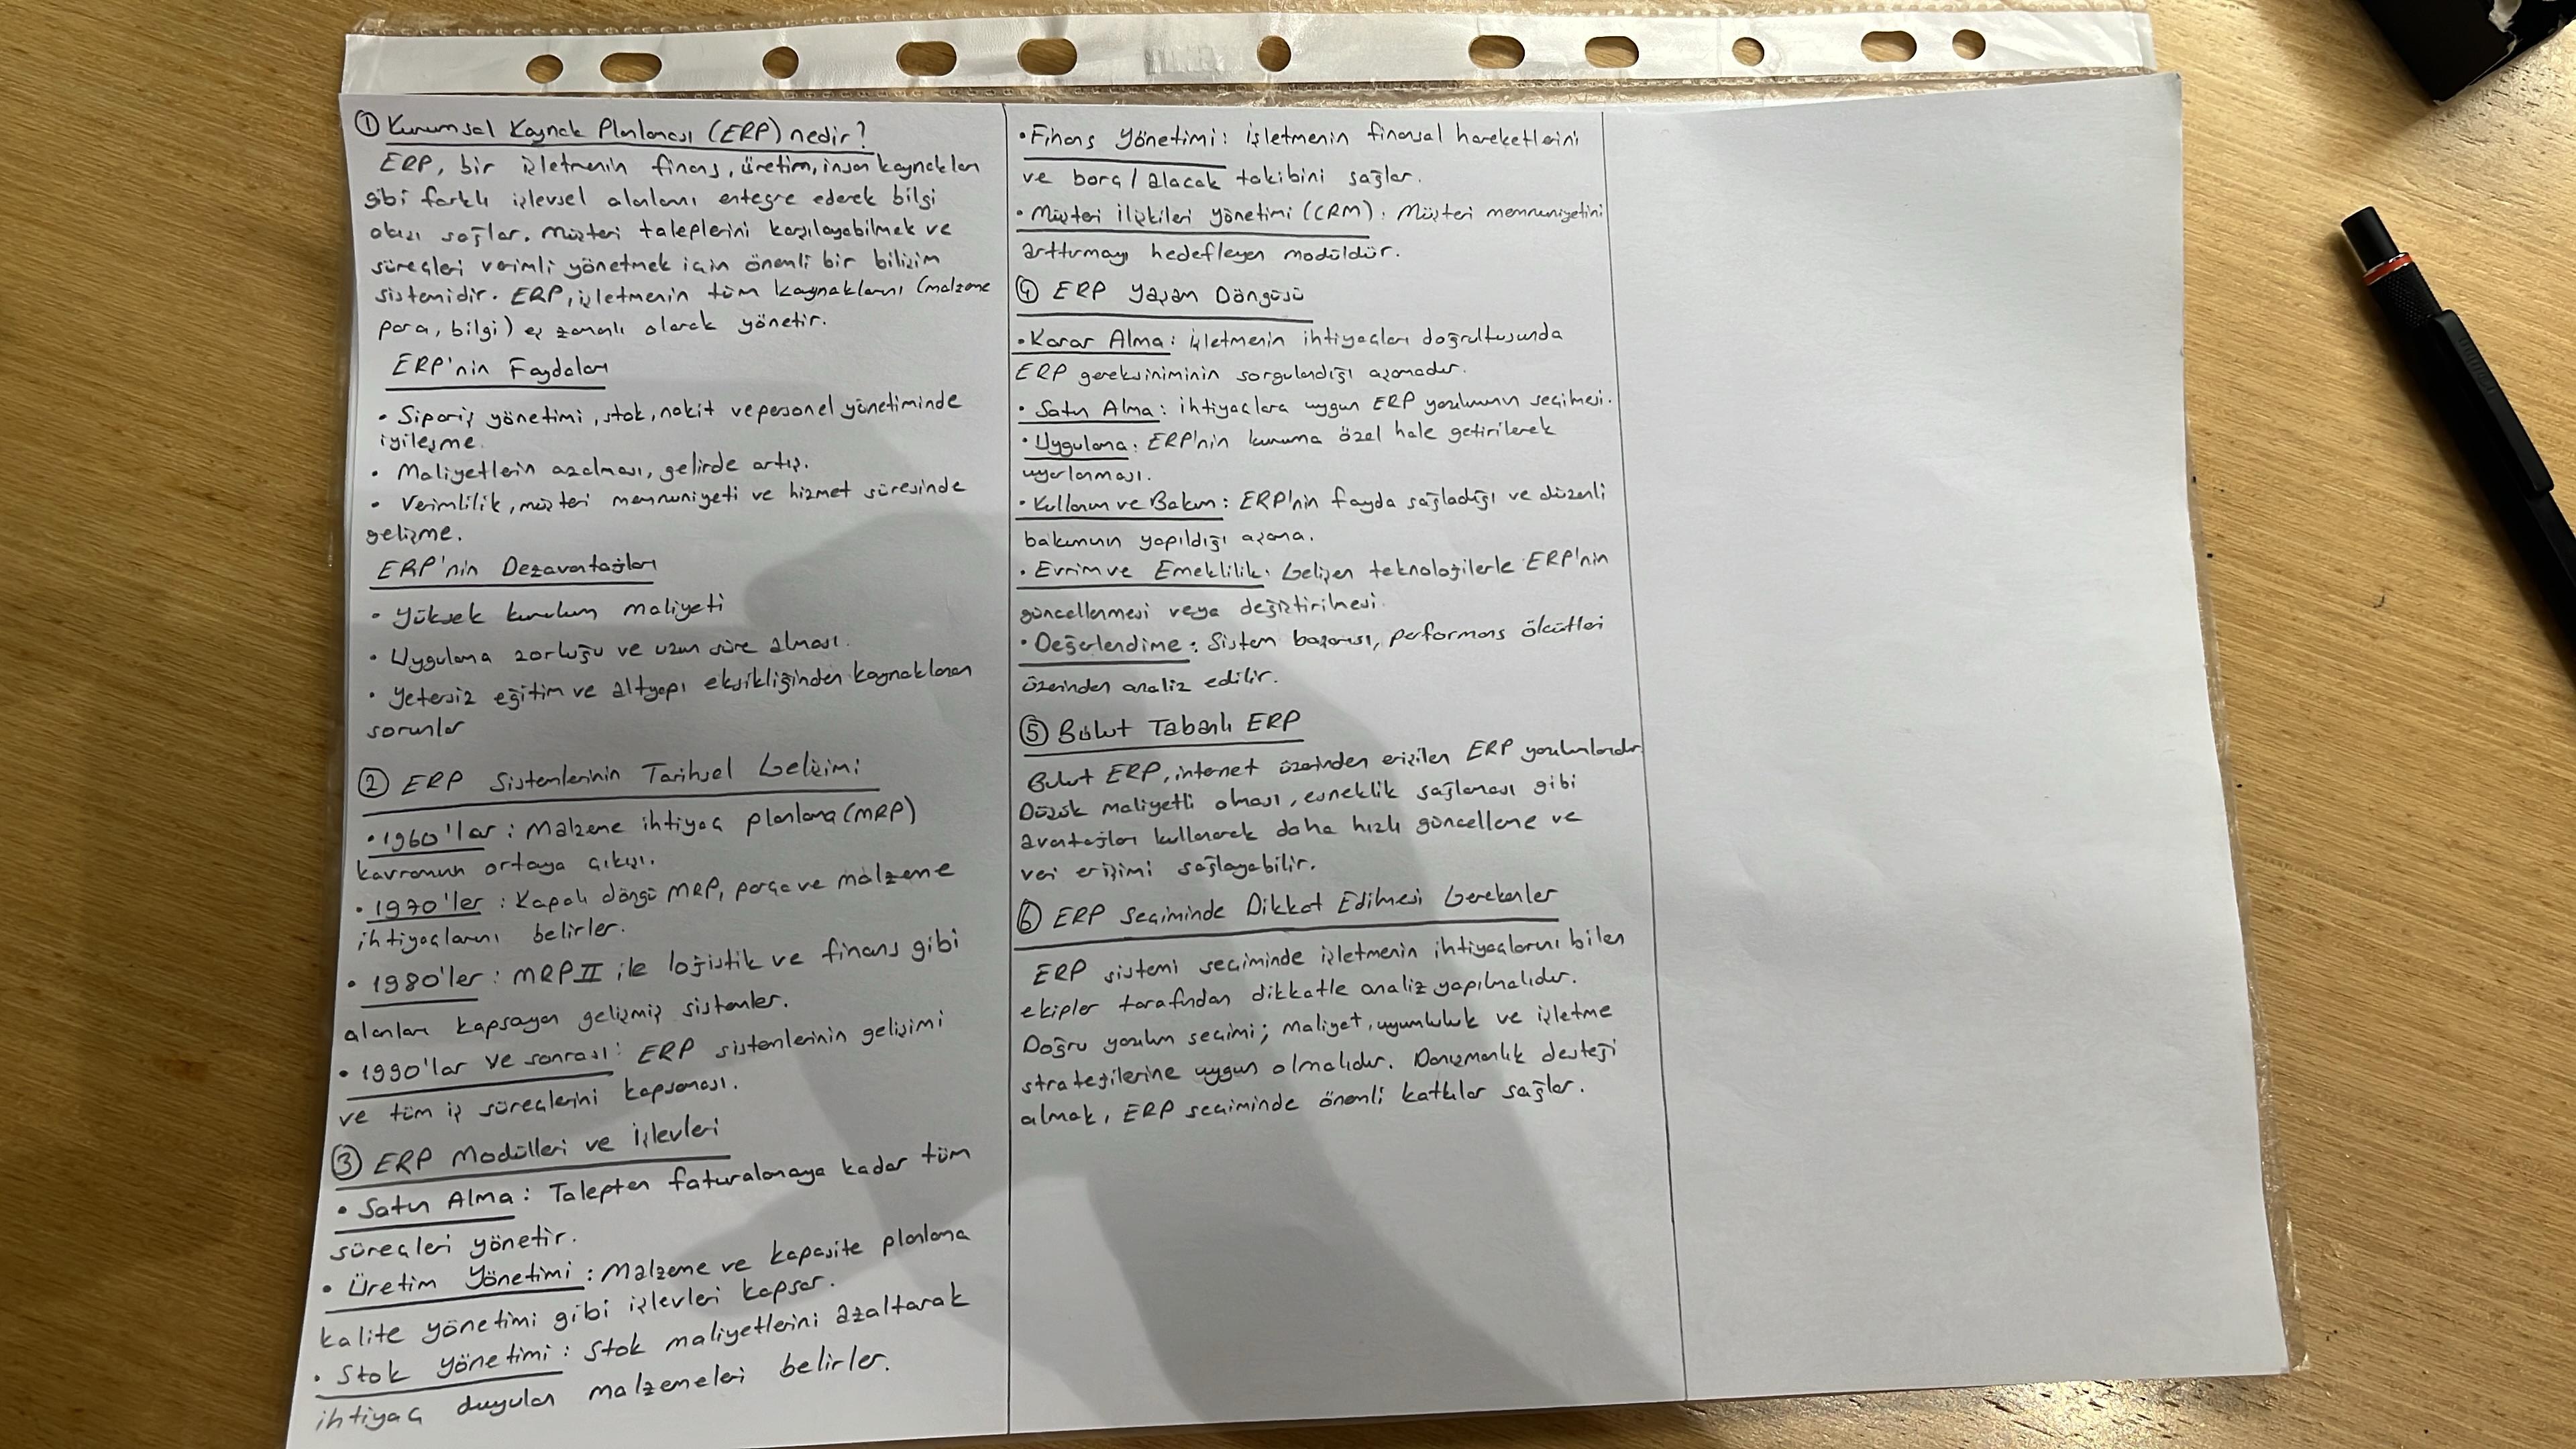 ① Kurumsal Kaynak Planlaması (ERP) nedir?
ERP, bir işletmenin finans, üretim, insan kaynakları
gibi farklı işlevsel alanlarını entegre ederek bilgi
akışı sağlar. Müşteri taleplerini karşılayabilmek ve
süreçleri verimli yönetmek için önemli bir bilişim
sistemidir. ERP, işletmenin tüm kaynaklarını (malzeme
para, bilgi) eş zamanlı olarak yönetir.
ERP'nin Faydaları
• Sipariş yönetimi, stok, nakit ve pesonel yönetiminde
iyileşme.
• Maliyetlerin azalması, gelirde artış.
• Verimlilik, müşteri memnuniyeti ve hizmet süresinde
gelişme.
ERP'nin Dezavantajları
• Yüksek kurulum maliyeti
• Uygulama zorluğu ve uzun süre alması.
• Yetersiz eğitim ve altyapı eksikliğinden kaynaklanan
sorunlar
② ERP Sistemlerinin Tarihsel Gelişimi
• 1960'lar : Malzeme ihtiyaç planlama (MRP)
kavramının ortaya çıkışı.
• 1970'ler : Kapalı döngü MRP, parça ve malzeme
ihtiyaçlarını belirler.
• 1980'ler : MRP II ile lojistik ve finans gibi
alanları kapsayan gelişmiş sistemler.
• 1990'lar ve sonrası : ERP sistemlerinin gelişimi
ve tüm iş süreçlerini kapsaması.
③ ERP Modülleri ve İşlevleri
• Satın Alma : Talepten faturalamaya kadar tüm
süreçleri yönetir.
• Üretim Yönetimi : Malzeme ve kapasite planlama
kalite yönetimi gibi işlevleri kapsar.
• Stok yönetimi : Stok maliyetlerini azaltarak
ihtiyaç duyulan malzemeleri belirler.
• Finans Yönetimi : işletmenin finansal hareketlerini
ve borç / alacak takibini sağlar.
• Müşteri İlişkileri Yönetimi (CRM) : Müşteri memnuniyetini
arttırmayı hedefleyen modüldür.
④ ERP Yaşam Döngüsü
• Karar Alma : işletmenin ihtiyaçları doğrultusunda
ERP gereksiniminin sorgulandığı aşamadır.
• Satın Alma : ihtiyaçlara uygun ERP yazılımının seçilmesi.
• Uygulama : ERP'nin kuruma özel hale getirilerek
uyarlanması.
• Kullanım ve Bakım : ERP'nin fayda sağladığı ve düzenli
bakımının yapıldığı aşama.
• Evrim ve Emeklilik : Gelişen teknolojilerle ERP'nin
güncellenmesi veya değiştirilmesi.
• Değerlendime : Sistem başarısı, performans ölçütleri
üzerinden analiz edilir.
⑤ Bulut Tabanlı ERP
Bulut ERP, internet üzerinden erişilen ERP yazılımlarıdır.
Düşük maliyetli olması, esneklik sağlaması gibi
avantajları kullanarak daha hızlı güncelleme ve
veri erişimi sağlayabilir.
⑥ ERP Seçiminde Dikkat Edilmesi Gerekenler
ERP sistemi seçiminde işletmenin ihtiyaçlarını bilen
ekipler tarafından dikkatle analiz yapılmalıdır.
Doğru yazılım seçimi; maliyet, uyumluluk ve işletme
stratejilerine uygun olmalıdır. Danışmanlık desteği
almak, ERP seçiminde önemli katkılar sağlar.